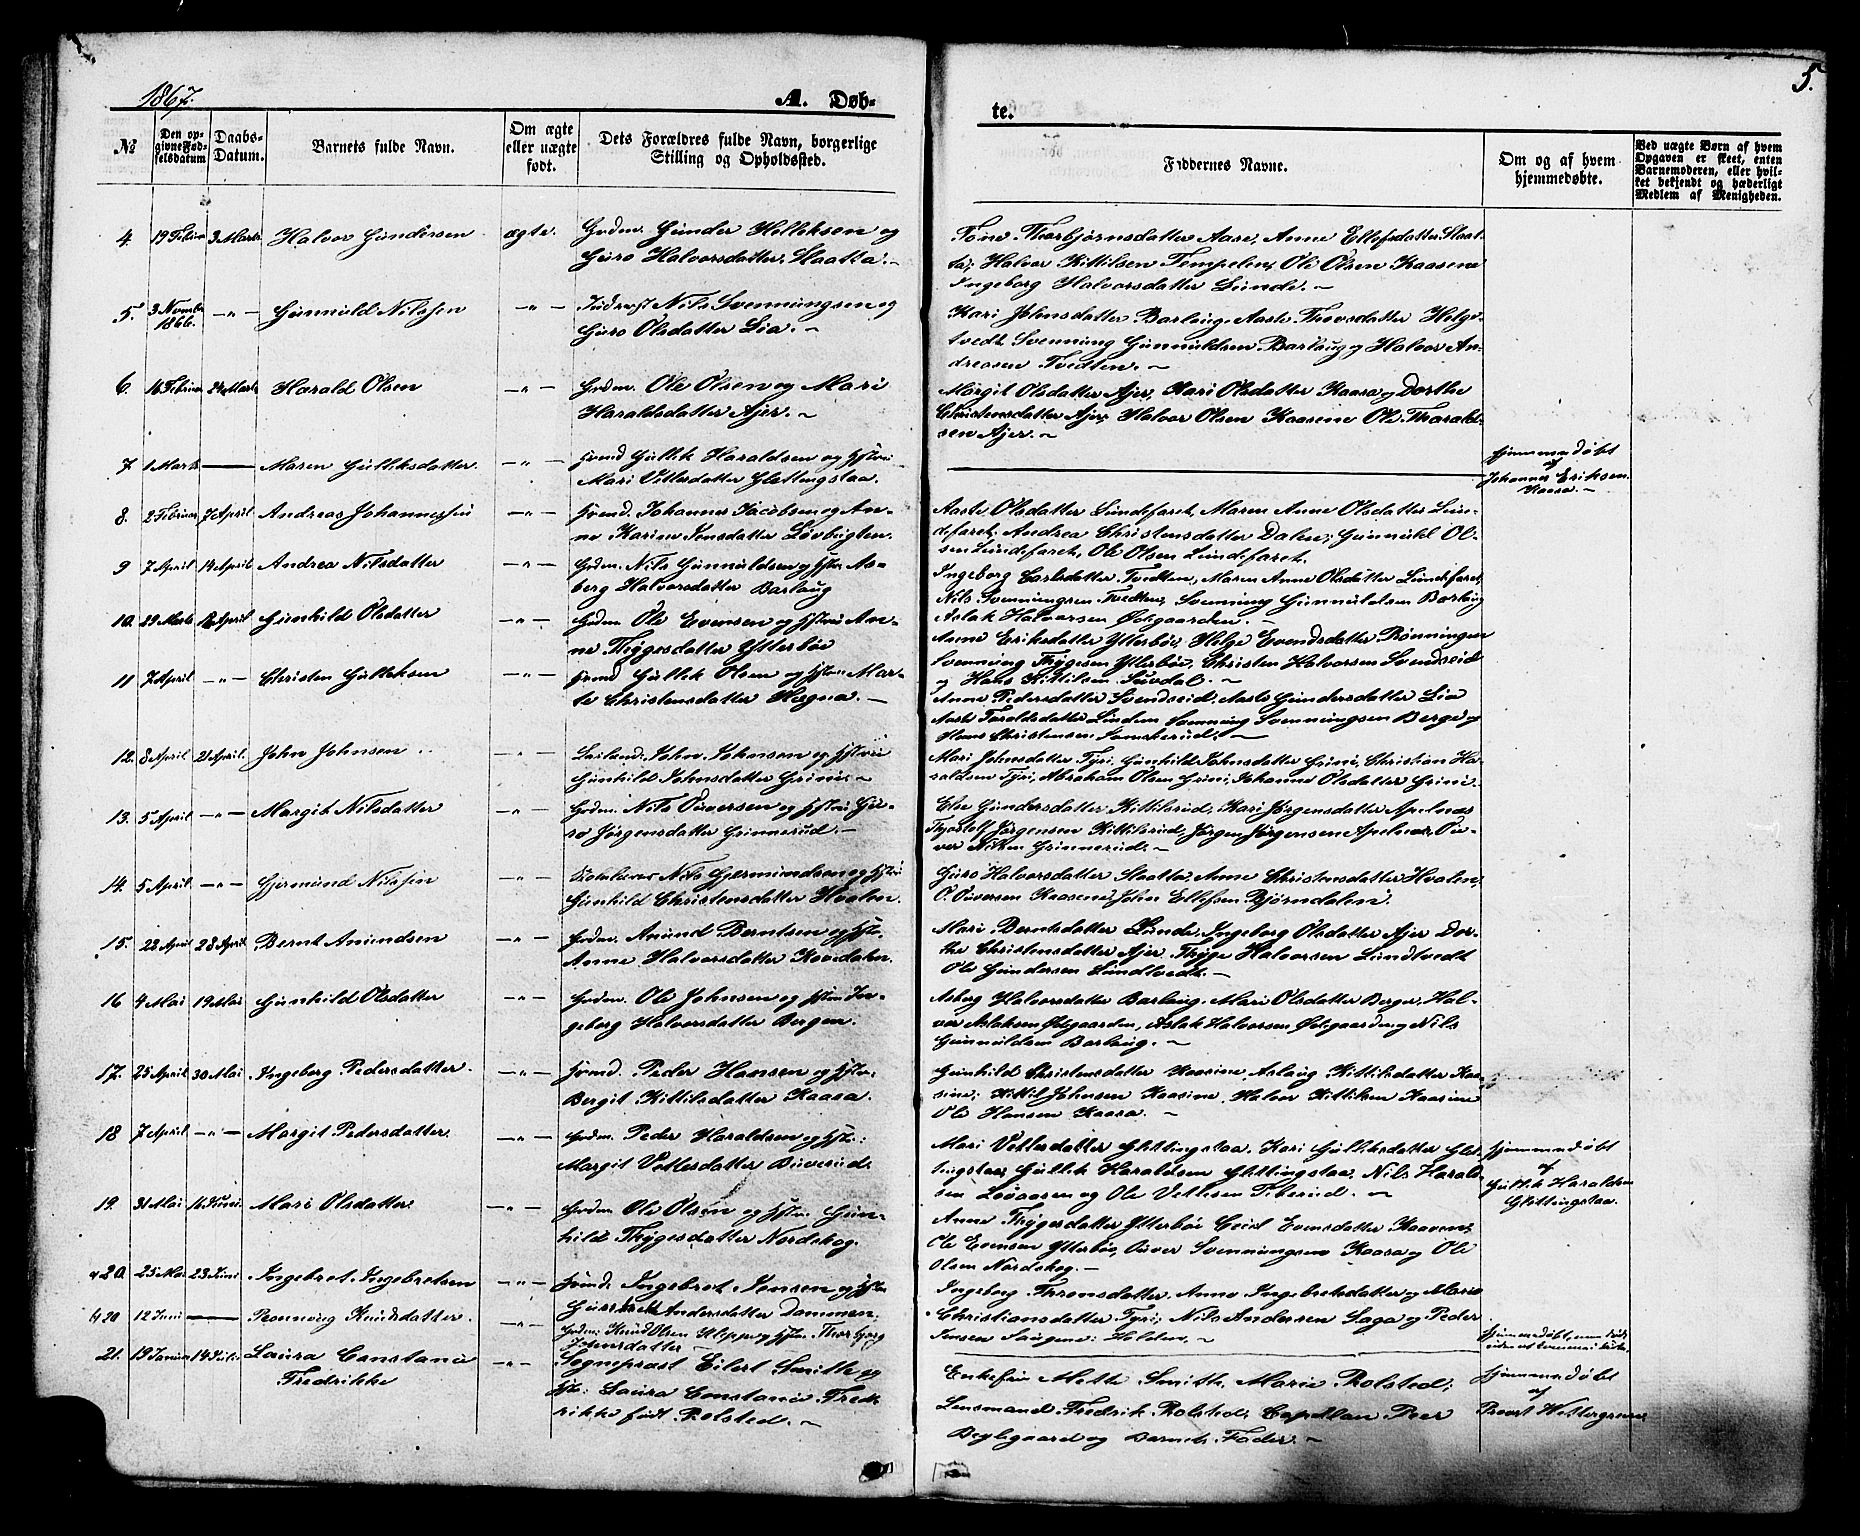 1867.
A. Døb-
te.
5.
№
Den op-
givne Fød-
selsdatum
Daabs-
Datum.
Barnets fulde Navn.
Om ægte
eller uægte
født.
Dets Forældres fulde Navn, borgerlige
Stilling og Opholdssted.
Faddernes Navne.
Om og af hvem
hjemmedøbte.
Ved uægte Børn af hvem
Opgaven er skeet, enten
Barnemoderen, eller hvil-
ket bekjendt og hæderligt
Medlem af Menigheden.
4. 19 Februar 3 Marts Halvor Gundersen ægte. Gudm. Gunder Kittilsen og
Guro Halvorsdatter Slaatta.
Tone Thorbjørnsdatter Aase, Anne Ellefsdatter Slaat-
ta, Halvor Kittilsen Tempelen, Ole Olsen Kaasene
Ingeborg Halvorsdatter Lunde.
5. 3 Novmbr 1866. -"- Gunnuld Nilssen -"- Nils Svennungsen og
Guro Olsdatter Lia.
Kari Johnsdatter Barlaug, Aaste Thovsdatter Helge-
tvedt, Svenning Gunnuldsen Barlaug og Halvor An-
dreasen Tvedten.
6. 16 Februar 24 Marts Harald Olsen -"- Gudm. Ole Olsen og Mari
Haraldsdatter Ajer.
Margit Olsdatter Ajer, Kari Olsdatter Kaasa og Dorthe
Christensdatter Ajer, Halvor Olsen Kaasene Ole Harald-
sen Ajer.
7. 1 Marts — Maren Gulliksdatter -"- Huusmd Gullik Haraldsen og Hstru
Mari Vetlesdatter Glettingstaa.
hjemmedøbt
af
Johannes Eriksen
Kaasa.
8. 2 Februar 7 April Andreas Johannessen -"- Johannes Jacobsen og An-
ne Karine Jensdatter Løvbugten.
Aaste Olsdatter Lundefaret, Maren Anne Olsdatter Lun-
defaret, Andrea Christensdatter Dalen, Gunnuld Ol-
sen Lundefaret, Ole Olsen Lundefaret.
9 7 April 14 April Andrea Nilsdatter -"- Gudm. Nils Gunnuldsen og Hstru As-
berg Halvorsdatter Barlaug
Ingeborg Carlsdatter Tvedten, Maren Anne Olsdatter Lundefaret,
Nils Svenningsen Tvedten, Svenning Gunnuldsen Barlaug
Aslak Halvorsen Ødegaarden.
10. 29 Marts April Gunhild Olsdatter -"- Gudm Ole Evensen og Hstru An-
ne Thygesdatter Ytterbøe
Anne Eriksdatter Ytterbøe, Helge Evensdatter Rønningen
Svenning Thygesen Ytterbøe, Christen Halvorsen Svendseid
og Hans Kittilsen Suvdal.
11 7 April -"- Christen Gulleksen -"- Gullik Olsen og Hstru Mar-
te Christensdatter Hagna.
Anne Pedersdatter Svendseid, Aaste Gundersdatter Lia
Aaste Taraldsdatter Linden Svenning Svenningsen Berge og
Hans Christensen
12. 8 April 21 April. John Johnsen -"- John Johnsen og Hstru
Gunhild Johnsdatter Grini.
Mari Johnsdatter Tyri, Gunhild Johnsdatter Grini, Christian Ha-
raldsen Tyri, Abraham Olsen Grini, Johanne Olsdatter Grini.
13. 5 April. -"- Margit Nilsdatter -"- Gudm. Nils Ouversen og Hstru Gu-
ro Jørgensdatter Grinnerud.
Else Gundersdatter Kittilsrud, Kari Jørgensdatter Apelnæs
Thjostolf Jørgensen Kittilsrud, Jørgen Jørgensen Apelnæs, Ou-
ver Nilsen Grinnerud.
14. 5 April. -"- Gjermund Nilssen -"- Nils Gjermundsen og Hstru
Gunhild Christensdatter Hvalen.
Guro Halvorsdatter Slaatta, Anne Christensdatter Hvalen,
O. Ouversen Kaasene, John Ellefsen Bjørndalen.
15. 22 April 28 April Bernt Amundsen -"- Gudm. Amund Berntsen og Hstru.
Anne Halvorsdatter Kovedalen.
Mari Berntsdatter Lunde, Ingeborg Olsdatter Ajer Dor-
the Christensdatter Ajer, Thyge Halvorsen Lundtvedt
Ole Gundersen Lundtvedt.
16 4 Mai 19 Mai Gunhild Olsdatter -"- Gudm. Ole Johnsen og Hstru In-
geborg Halvorsdatter Bergen.
Asberg Halvorsdatter Barlaug, Mari Olsdatter Berger, Hal-
vor Aslaksen Ødegaarden, Aslak Halvorsen Ødegaarden og Nils
Gunnuldsen Barlaug.
17. 25 April 30 Mai Ingeborg Pedersdatter -"- Huusmd. Peder Hansen og Hstru.
Bergit Kittilsdatter Kaasa.
Gunhild Christensdatter Kaasine, Aslaug Kittilsdatter Kaa-
sine, Kittil Johnsen Kaasine, Halvor Kittilsen Kaasine
Ole Hansen Kaasa.
18 7 April -"- Margit Pedersdatter -"- Gudm. Peder Haraldsen og Hstru:
Margit Vetlesdatter Buverud.
Mari Vetlesdatter Glettingstaa, Kari Gulliksdatter Glet-
tingstaa, Gullik Haraldsen Glettingstaa, Nils Harald-
sen Løvaasen og Ole Vetlesen Tiberud.
hjemmedøbt
af
Gullik Haraldsen
Glettingstaa.
19. 31 Mai 16 Juni. Mari Olsdatter -"- Gudm. Ole Olsen og Hstru. Gun-
hild Thygesdatter Nordskog.
Anne Thygesdatter Ytterbøe Evensdatter Kaasene,
Ole Evensen Ytterbøe, Ouver Svenningsen Kaasa og Ole
Olsen Nordskog.
20. 25 Mai 23 Juni Ingebret Ingebretsen -"- Huusmd. Ingebret Jensen og Hstru
Andersdatter Dammen.
Ingeborg Jensdatter, Anne Ingebretsdatter og Maria
Christiansdatter Tyri, Nils Andersen Saga og Peder
Jensen
20 12 Juni — Ronnoug Knudsdatter. -"- Gudm: Knud Olsen Klep og Hstru. Thorbjørg
Johnsdatter
21. 19 Januar 14 Juli Laura Constance
Fredrikke
-"- Sognepræst Eilert Smith og
Hst: Laura Constance Fred-
rikke født Rolsted.
Enkefru Mette Smith, Marie Rolsted,
Lensmand Fredrik Rolsted, Capellan Peer
Bøylegaard og Barnets Fader.
hjemmedøbt
af
Provst Wettergreen